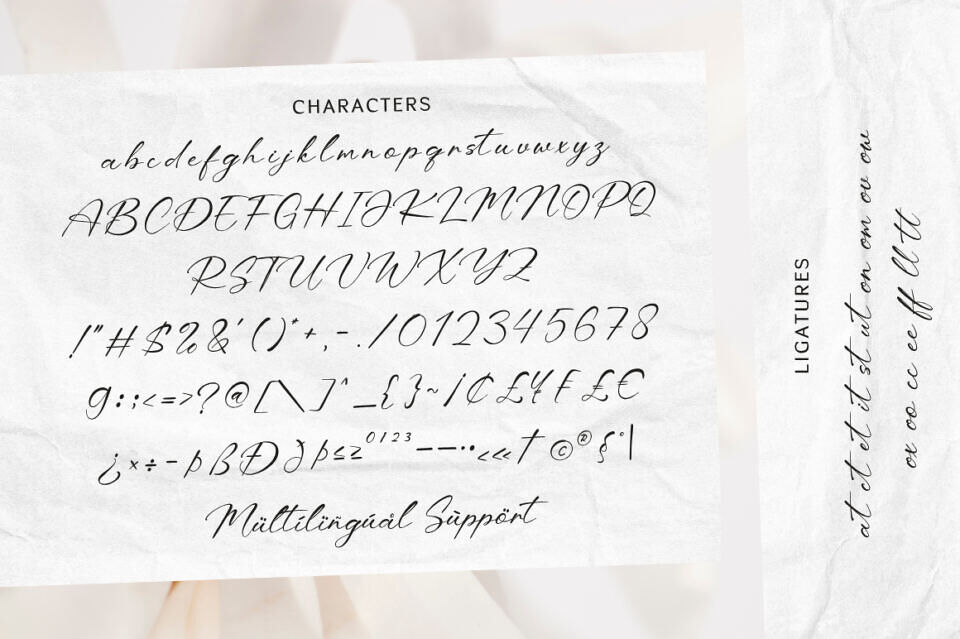 CHARACTERS
abcdefghijklmnopqrstuvwxyz
ABCDEFGHIJKLMNOPQ
RSTUVWXYZ
!"#$%&'()*+,-./012345678
9:;<=>?@[\]^_{}~¡¢£¥ƒ₤€
¿×÷-þßÐðþ≤≥⁰¹²³–—··‹«‹†©®§°|
Mültílïñgúál Sùppört
LIGATURES
at ct et it st ut on om ov ow
ox oo cc ee ff ll tt